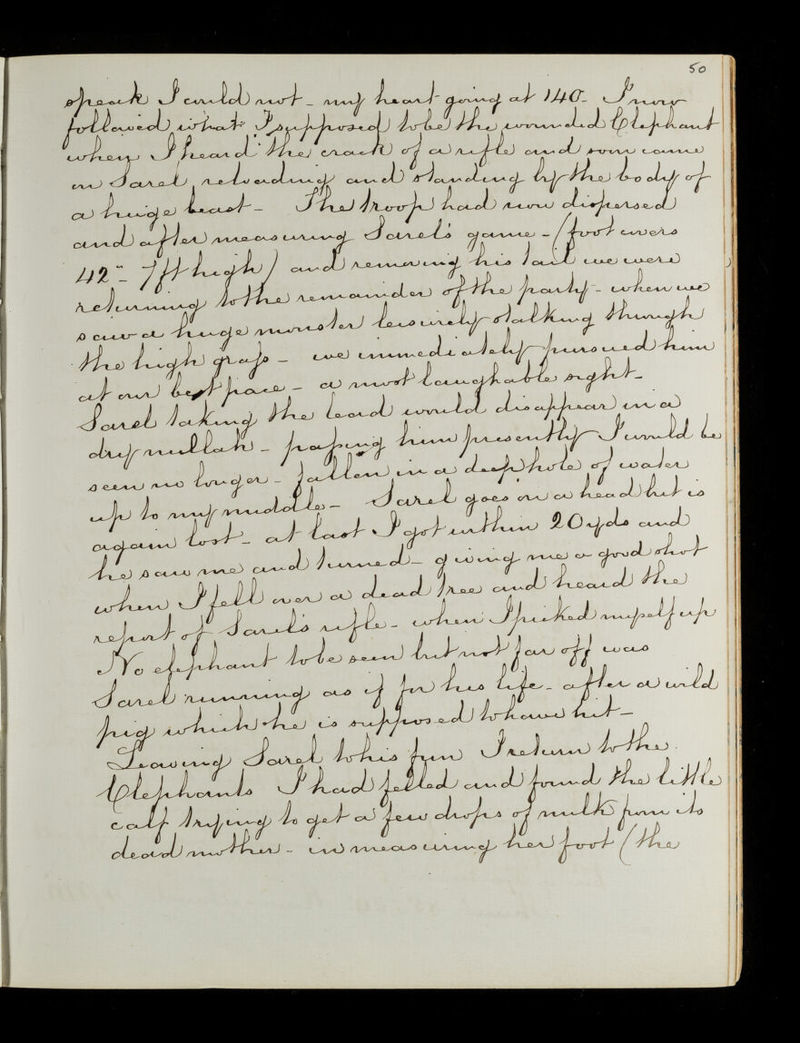 50
speak I could not - my heart going at 140. I now
followed what I supposed to be the wounded Elephant
when I heard the crack of a rifle and soon came
on Sarel, reloading and standing by the body of
a huge beast - The troop had now dispersed
and after measuring Sarel's game - (foot covers
42" - 7ft high) and removing his tail we were
returning to the remainder of the party - when we
saw a huge monster leisurely stalking through
the high grass - we immediately pursued him
at our best pace - a most laughable sight -
Sarel taking the lead would disappear in a
dry nullah - passing him presently I would be
seen no longer - fallen in a deep hole of water
up to my middle - Sarel goes on a head but is
again lost - at last I got within 20 yds and
he saw me and turned - giving me a good shot
when I fell over a dead tree and heard the
report of Sarel's rifle - when I picked myself up
No elephant to be seen but not far off was
Sarel running as if for his life - after a wild
pig which he is supposed to have hit -
Leaving Sarel to his fun I return to the
Elephants I had felled and found the little
calf trying to get a few drops of milk from its
dead mother - in measuring her foot (the